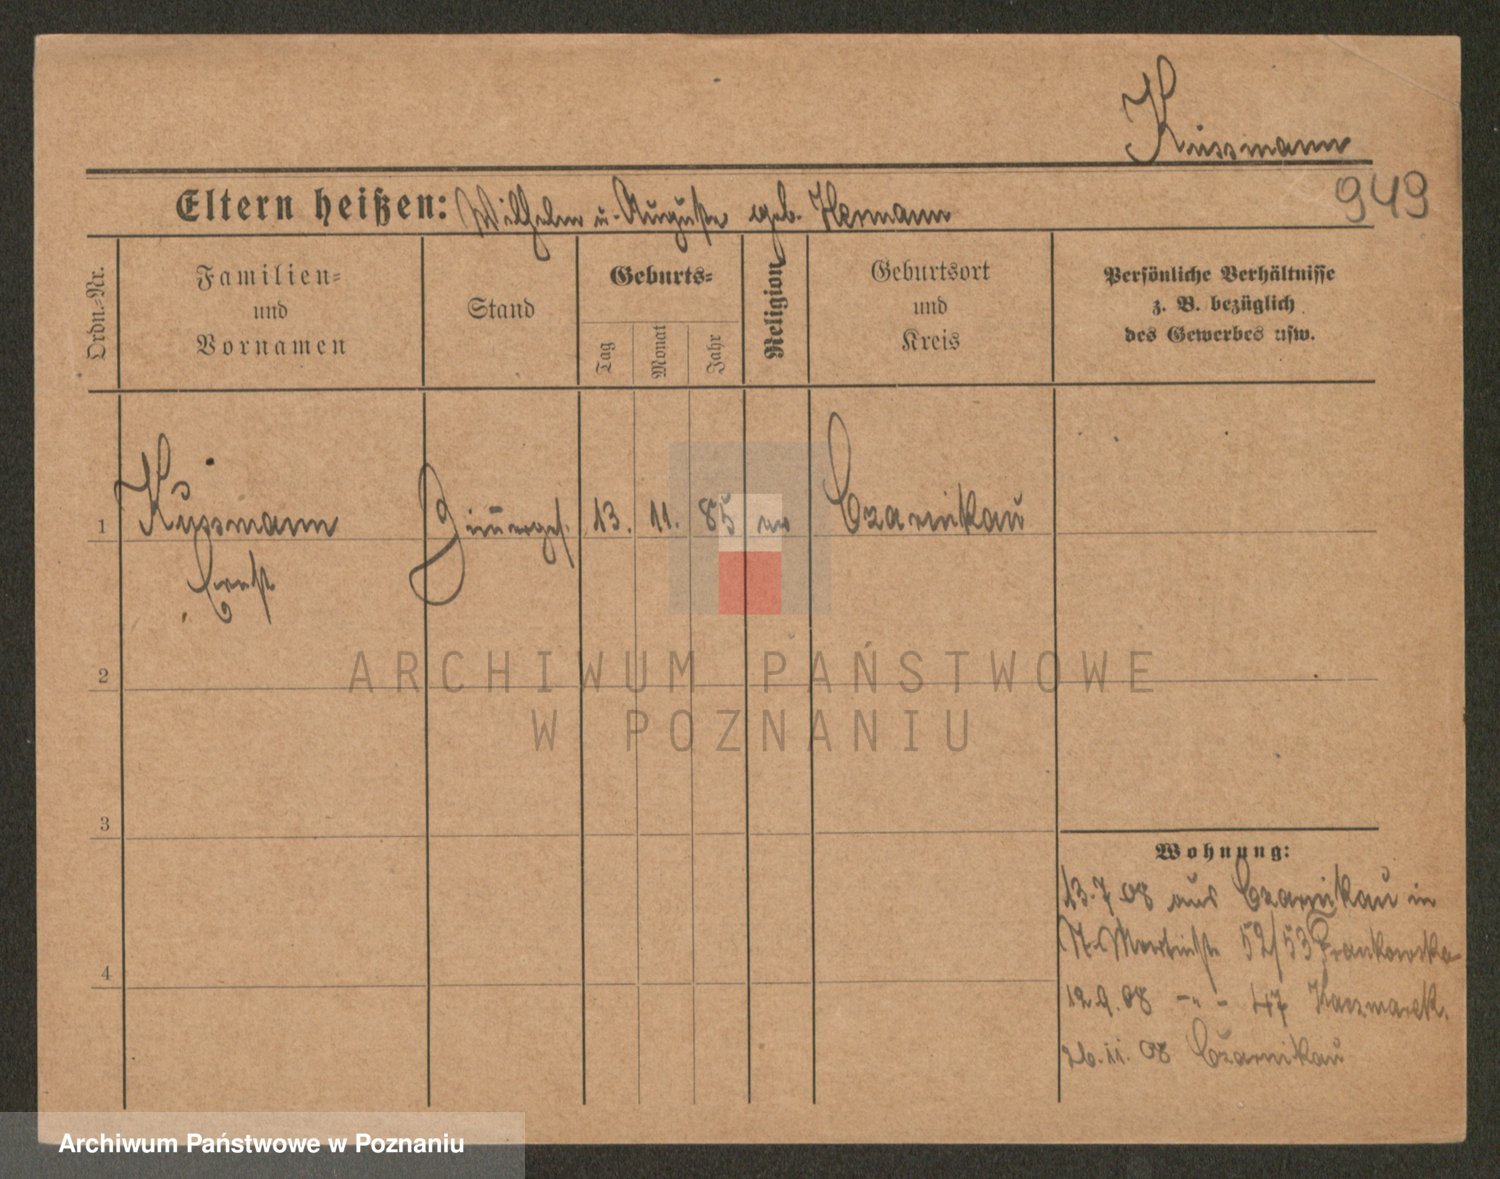 Kussmann
949
Eltern heißen: Wilhelm u. Auguste geb. Hermann
Ordn.-Nr.
Familien- und Vornamen
Stand
Geburts-
Tag
Monat
Jahr
Religion
Geburtsort und Kreis
Persönliche Verhältnisse z. B. bezüglich des Gewerbes usw.
1 Kussmann 13. 11. 85 Czarnikau
Ernst
2
3
4
Wohnung:
13.7 08 aus Czarnikau in
St. Martinstr 52/53
12.9.08 -"- 47 Kaczmarek.
26.11.08 Czarnikau
ARCHIWUM PAŃSTWOWE
W POZNANIU
Archiwum Państwowe w Poznaniu